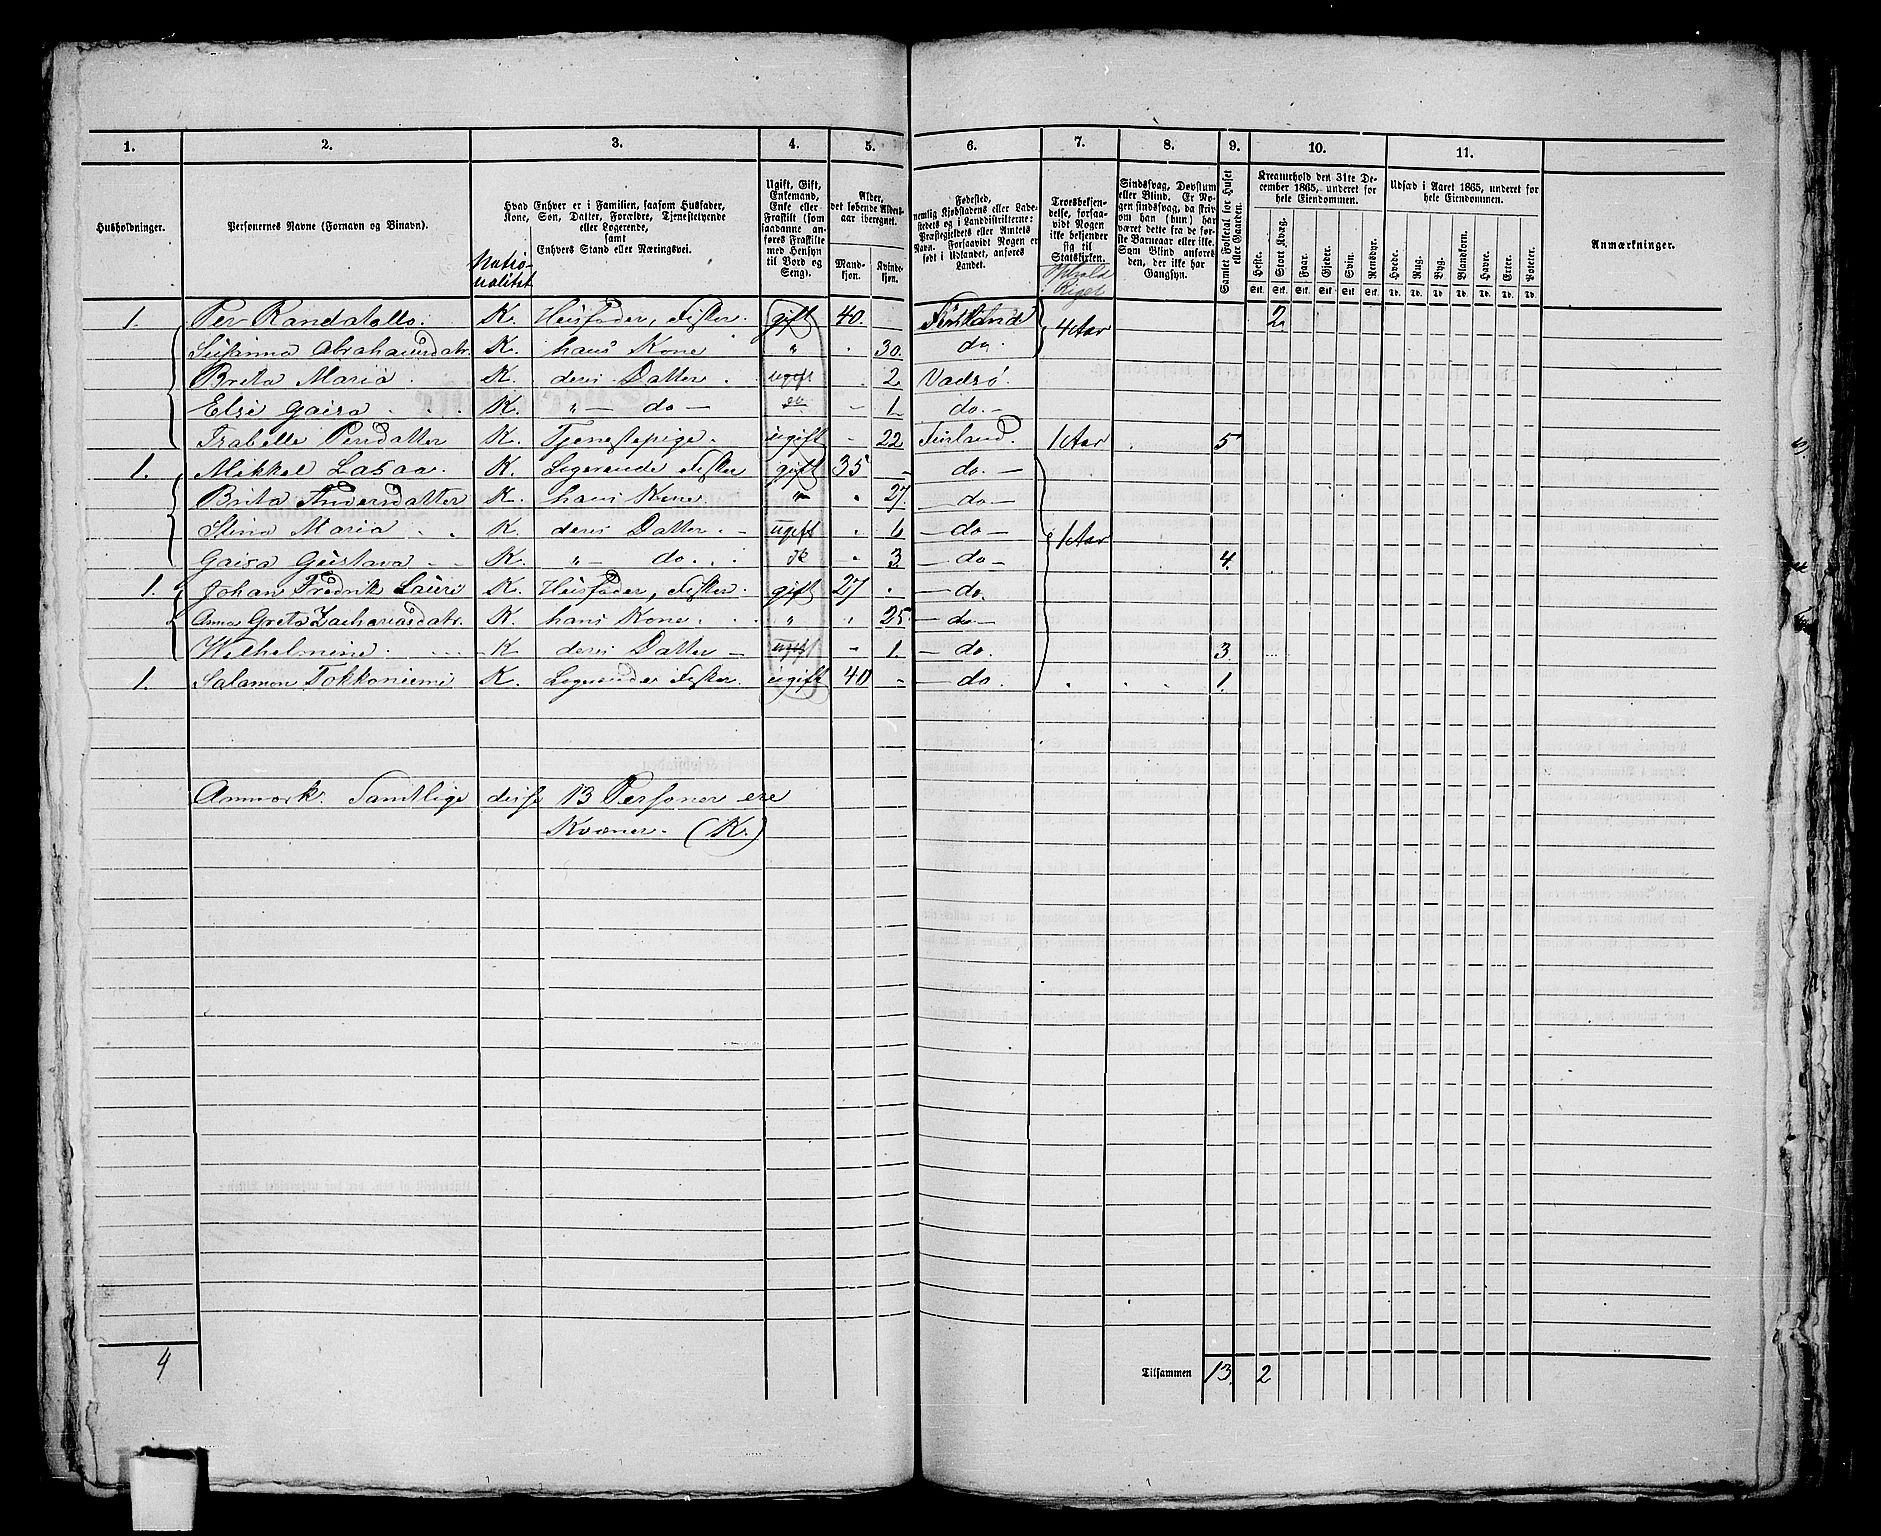 1. 2. 3. 4. 5. 6. 7. 8. 9. 10. 11.
Husholdninger.
Personernes Navne (Fornavn og Binavn).
Hvad Enhver er i Familien, saasom Husfader, Kone, Søn, Datter, Forældre, Tjenestetyende eller Logerende, samt Enhvers Stand eller Næringsvei.
Natio-
nalitet
Ugift, Gift, Enkemand, Enke eller Fraskilt (som saadanne anføres Fraskilte med Hensyn til Bord og Seng).
Alder, det løbende Aldersaar iberegnet.
Mandkjøn. Kvindekjøn.
Fødested, nemlig Kjøbstadens eller Ladestedets og i Landdistrikterne: Præstegjeldets eller Amtets Navn. Forsaavidt Nogen er født i Udlandet, anføres Landet.
Troesbekjendelse, forsaavidt Nogen ikke bekjender sig til Statskirken.
Ophold i
Riget
Sindssvag, Døvstum eller Blind. Er Nogen sindssvag, da skrives om han (hun) har været dette fra de første Barneaar eller ikke. Som Blind anføres den, der ikke har Gangsyn.
Samlet Folketal for Huset eller Gaarden.
Kreaturhold den 31te December 1865, underet for hele Eiendommen.
Heste. Stort Kvæg. Faar. Gjeder. Svin. Rensdyr.
Stk. Stk. Stk. Stk. Stk. Stk.
Udsæd i Aaret 1865, underet for hele Eiendommen.
Hvede. Rug. Byg. Blandkorn. Havre. Erter. Poteter.
Td. Td. Td. Td. Td. Td. Td.
Anmærkninger.
1. Per Randatallo. K. Husfader, Fisker. gift 40. Finland 4 Aar 2
Susanna Abrahamsdatr. K. hans Kone " 30. do.
Brita Maria. K. deres Datter ugift 2 Vadsø.
Else Gaisa K. " — do — do 1 do. —
Isabelle Persdatter K. Tjenestepige. ugift 22 Finland. 1 Aar 5
1. Mikkel Lasaa. K. Logerende Fisker gift 35 — do. —
Brita Andersdatter K. hans Kone. " 27. — do —
Stina Maria K. deres Datter. — ugift 6 — do — 1 Aar
Gaisa Gustava K " — do. 3 — do — 4.
1. Johan Fredrik Lauri K. Husfader, Fisker. gift 27 — do.
Anna Greta Zachariasdatr. K. hans Kone. " 25. — do —
Wilhelmine K. deres Datter — ugift 1. — do. 3.
1. Salamon Tokkoniemi K. Logerende Fisker. ugift 40 — do. 1.
Anmærk. Samtlige disse 13 Personer ere
Kvæner. (K.)
4
Tilsammen 13. 2